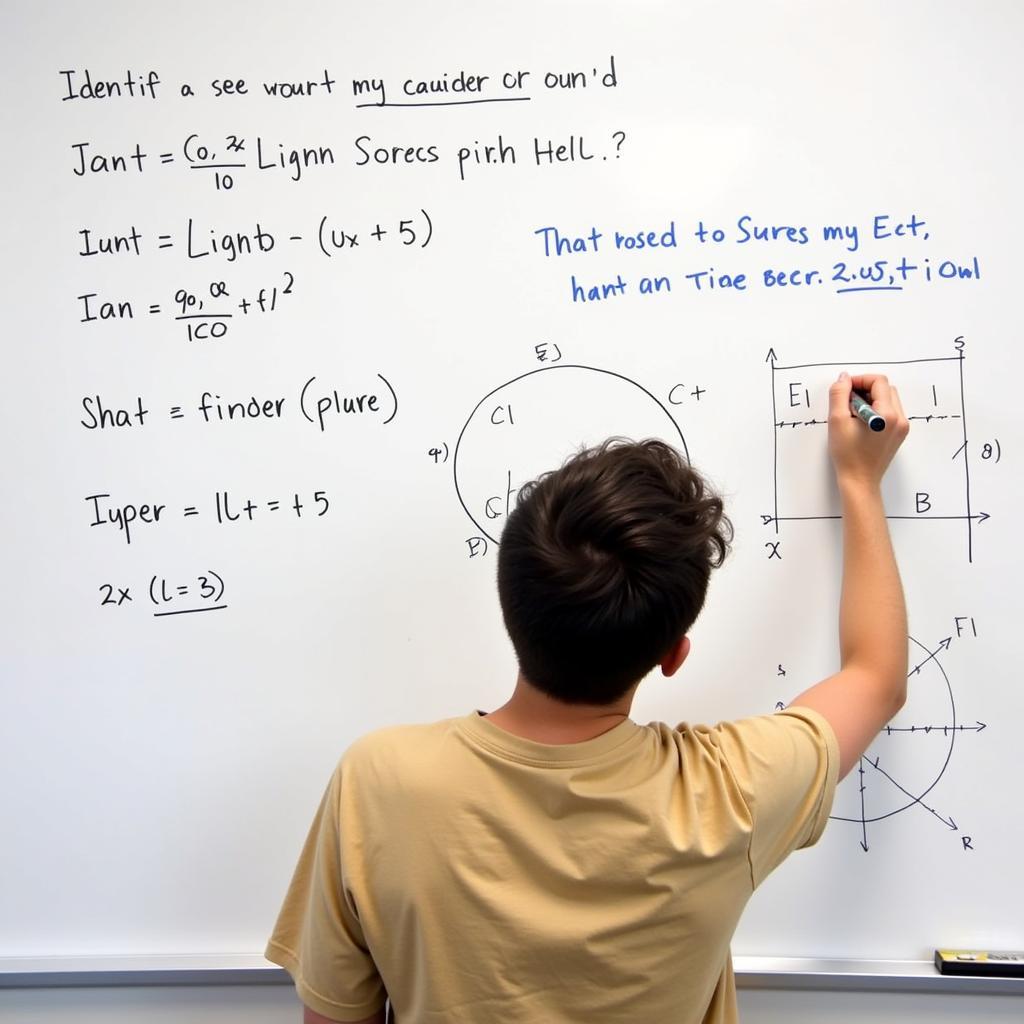 Identif a see wourt my cauider or oun'd
Jant = (o, 2x / 10 Lignn Sorecs pirh Hell.?
Iunt = Lignb - (ux + 5)
Ian = 90, 02 / 1CO + f/²
Shat = finder (plure)
Iyper = |L+ = + 5
2x (l = 3)
That rosed to Sures my Ect,
hant an Tine Becr. 2.u5,+ i Owl
E)
C+
C1
4)
G
E)
S
E1
1
8)
B
X
F1
s
R